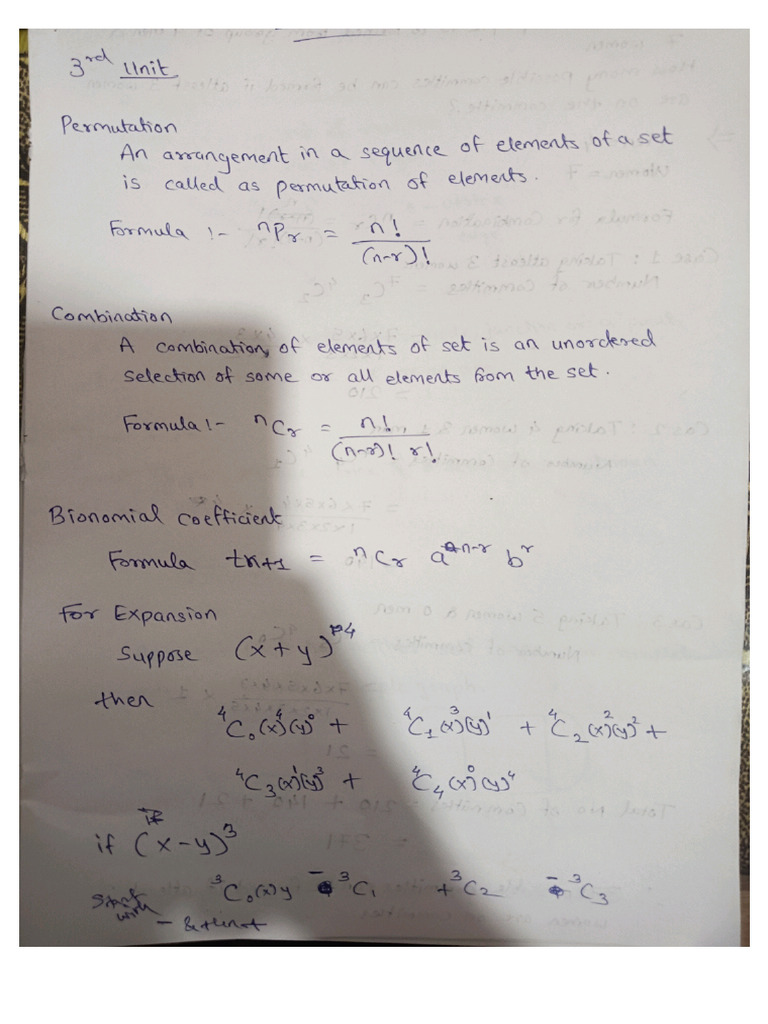 3rd Unit
Permutation
An arrangement in a sequence of elements of a set
is called as permutation of elements.
Formula :- ⁿPr = n! / (n-r)!
Combination
A combination, of elements of set is an unordered
selection of some or all elements from the set.
Formula :- ⁿCr = n! / (n-r)! r!
Bionomial coefficient
Formula tr+1 = ⁿCr aⁿ⁻ʳ bʳ
For Expansion
Suppose (x+y)⁴
then
⁴C₀(x)⁴(y)⁰ + ⁴C₁(x)³(y)¹ + ⁴C₂(x)²(y)² +
⁴C₃(x)¹(y)³ + ⁴C₄(x)⁰(y)⁴
if (x-y)³
³C₀(x)y - ³C₁ + ³C₂ - ³C₃
start with
-